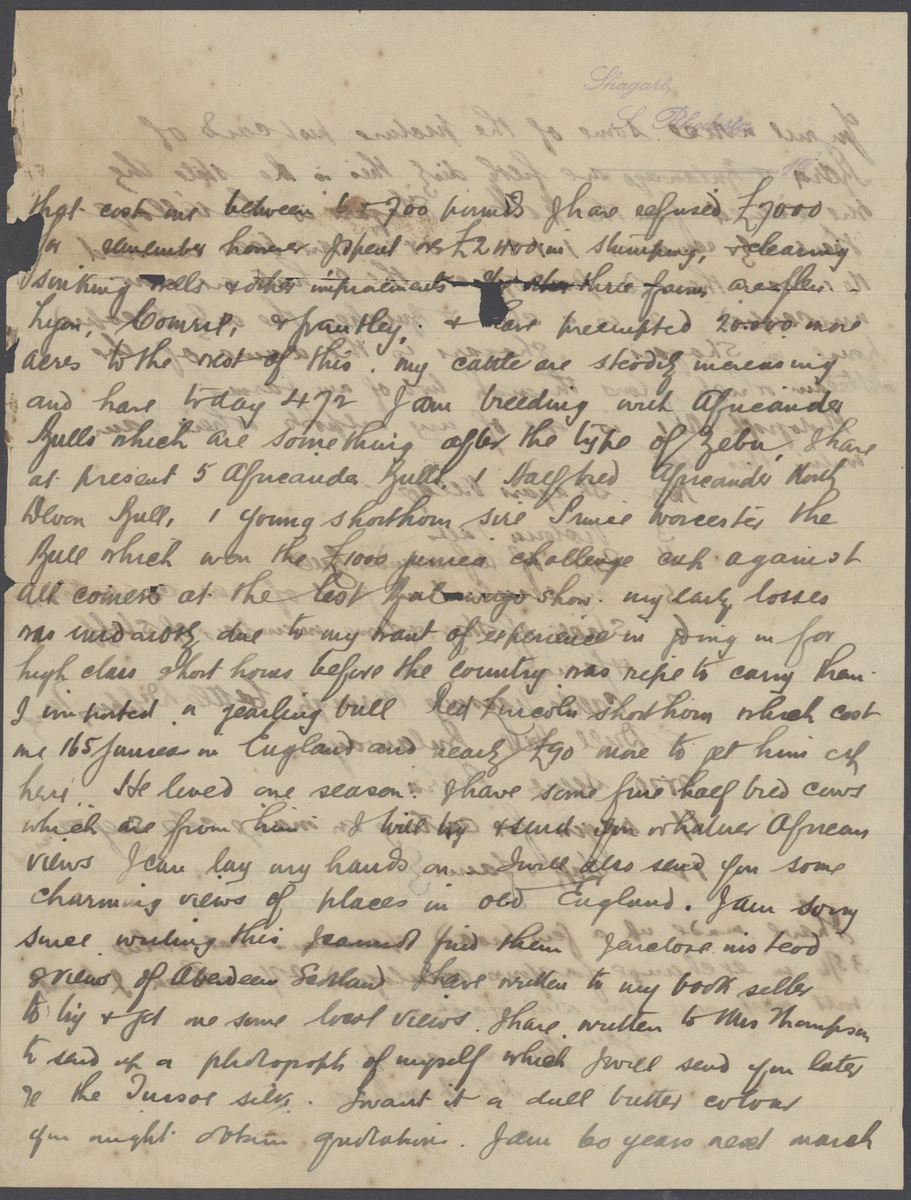 Shagari,
S. Rhodesia
that cost me between 6 & 700 pounds I have refused £7000
for remember however I spent over £2400 in stumping, & clearing
sinking wells & other improvements three farms are Glen
Lyon, Comrie, & have preempted 20.000 more
acres to the rest of this. my cattle are steadily increasing
and have today 472 I am breeding with Africander
Bulls which are something after the type of Zebu, I have
at present 5 Africander Bulls. 1 Half bred Africander North
Devon Bull, 1 young shorthorn sire Prince Worcester the
Bull which won the £1000 guinea challenge cup against
all comers at the last Bulawayo show. my early losses
was undoubtedly due to my want of experience in going in for
high class short horns before the country was ripe to carry them.
I imported a yearling bull Red Lincoln shorthorn which cost
me 165 Guineas in England and nearly £90 more to get him out
here. He lived one season. I have some fine half bred cows
which are from him I will try & send you whatever African
views I can lay my hands on I will also send you some
charming views of places in old England. I am sorry
since writing this I cannot find them I enclose instead
8 views of Aberdeen Scotland I have written to my book seller
to try & get me some local views. I have written to Mrs Thompson
to send up a photograph of myself which I will send you later
re the Tussor silk. I want it a dull butter colour
you might obtain quotations. I am 60 years next march